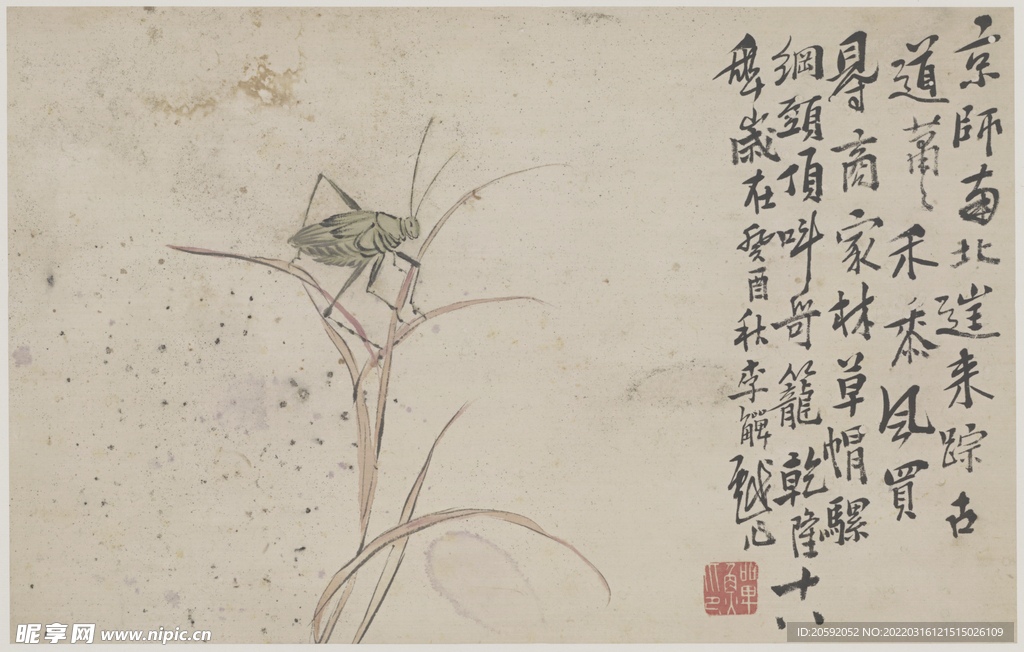 京師南北邊来踪古
道蕭〻禾黍風買
得商家林草帽騾
綱頭頂叫哥籠乾隆十八
年歲在癸酉秋李觶戲作
昵享网 www.nipic.cn
ID:20592052 NO:20220316121515026109